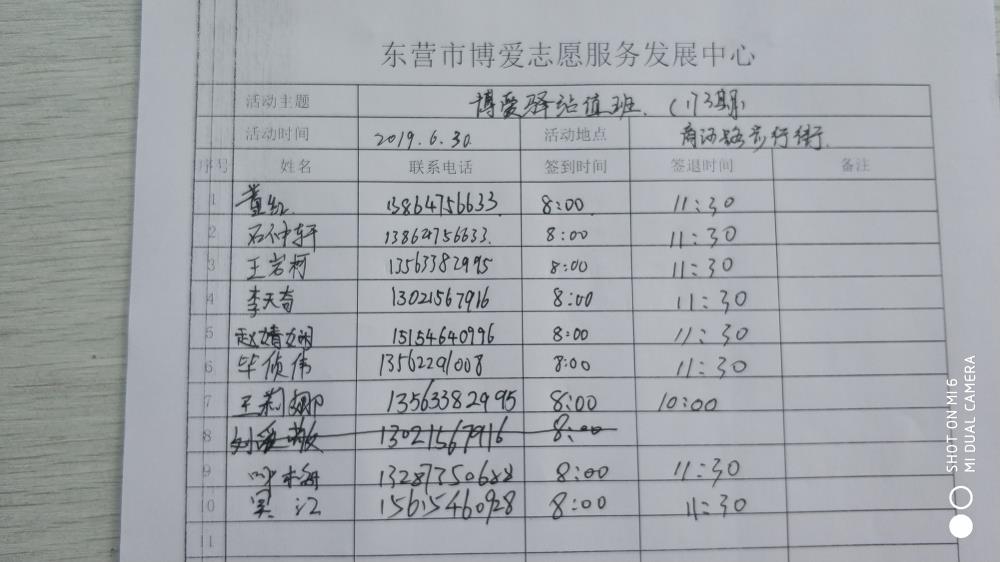 东营市博爱志愿服务发展中心
活动主题 博爱驿站值班.（173期）
活动时间 2019.6.30 活动地点 商河路步行街.
序号 姓名 联系电话 签到时间 签退时间 备注
1 董红 13864756633 8:00 11:30
2 石仲轩 13864756633. 8:00 11:30
3 王岩柯 13563382995 8:00 11:30
4 李天奇 13021567916 8:00 11:30
5 赵婧娴 15154640996 8:00 11:30
6 毕侦伟 13562291008 8:00 11:30
7 王莉娜 13563382995 8:00 10:00
8 刘爱敏 13021567916 8:00
9 叶梅 13287350688 8:00 11:30
10 吴江 15615460928 8:00 11:30
11
SHOT ON MI 6
MI DUAL CAMERA